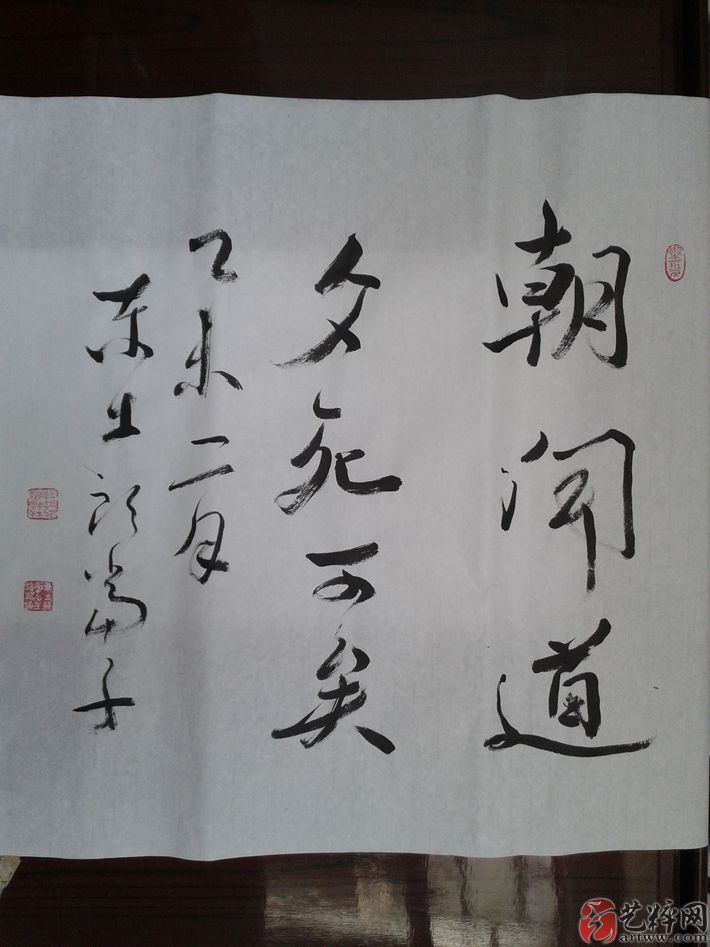 朝闻道
夕死可矣
乙未二月
东土
艺粹网
artww.com